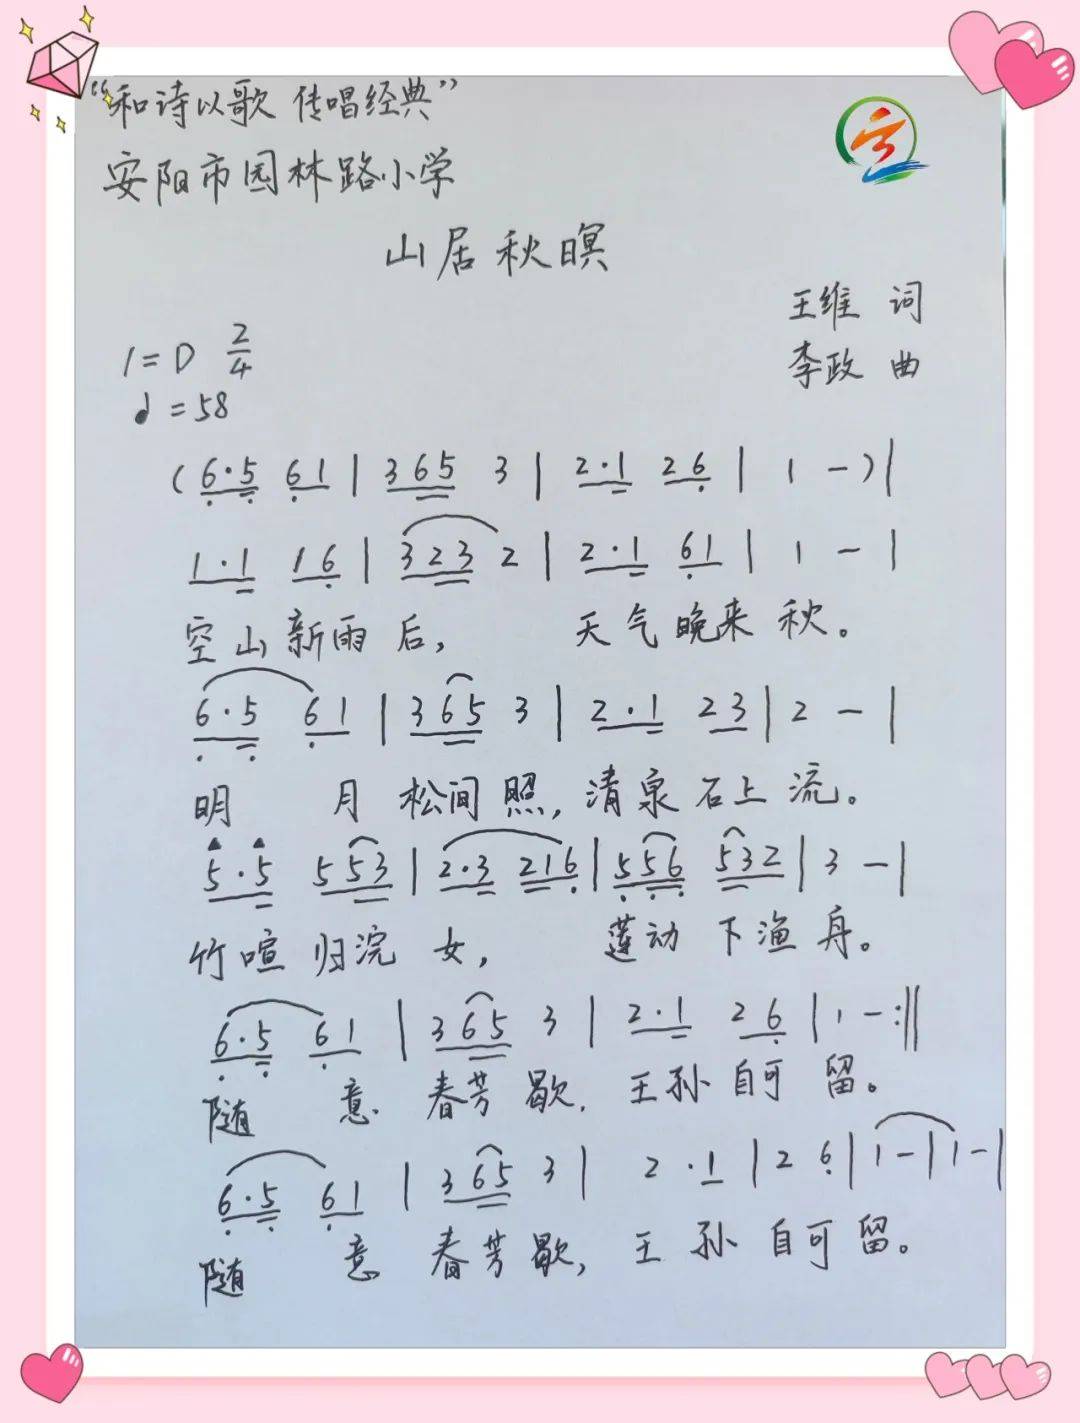 “和诗以歌 传唱经典”
安阳市园林路小学
山居秋暝
王维 词
李政 曲
1=D 2/4
♩=58
(6·5 61 | 365 3 | 2·1 26 | 1 -)|
1·1 16 | 323 2 | 2·1 61 | 1 - |
空山新雨后, 天气晚来秋。
6·5 61 | 365 3 | 2·1 23 | 2 - |
明 月 松间照,清泉石上流。
5·5 553 | 2·3 216 | 556 532 | 3 - |
竹喧归浣女, 莲动下渔舟。
6·5 61 | 365 3 | 2·1 26 | 1 - :||
随 意 春芳歇, 王孙自可留。
6·5 61 | 365 3 | 2·1 | 2 6 | 1 - | 1 - |
随 意 春芳歇, 王孙自可留。